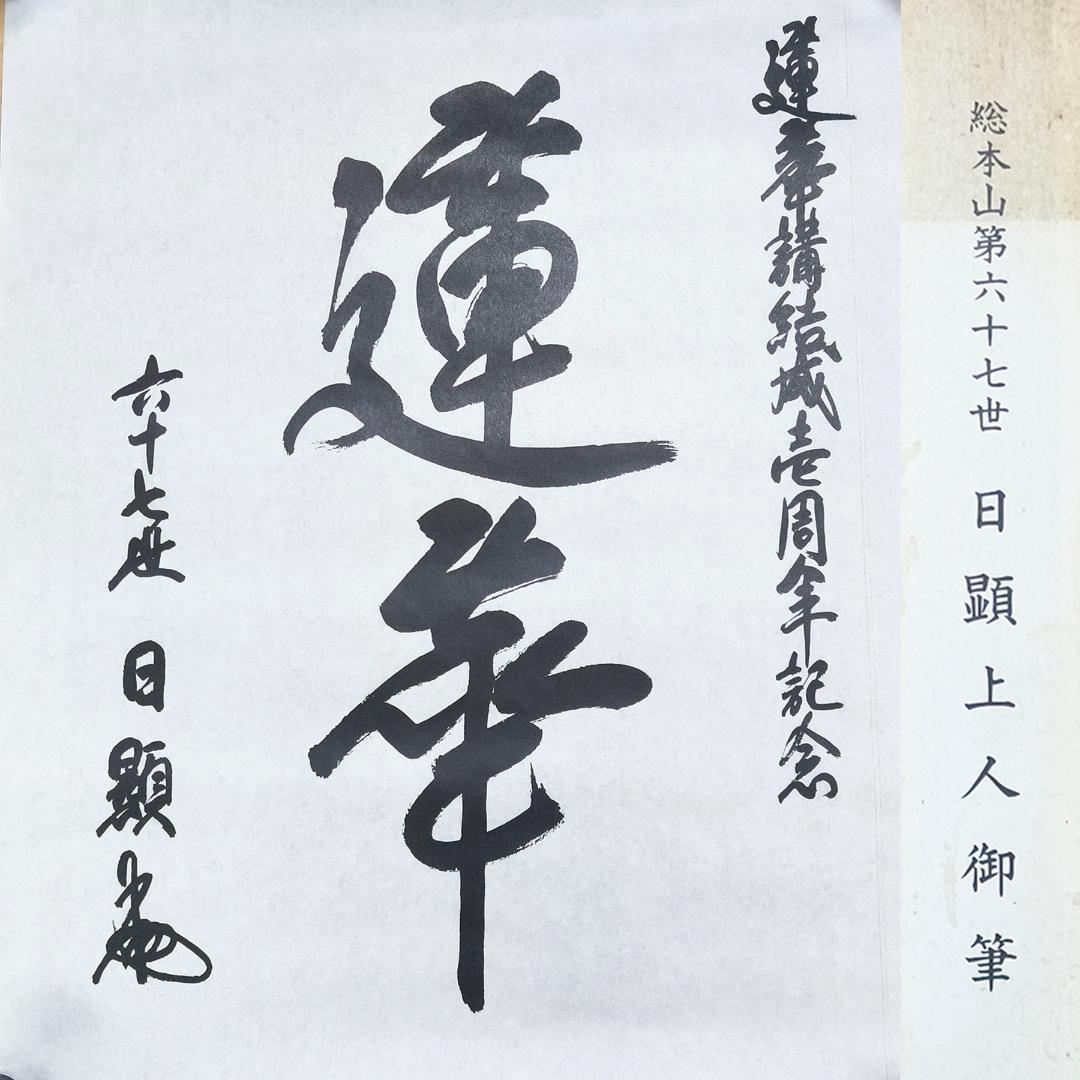 総本山第六十七世 日顕上人御筆
蓮華講結成壱周年記念
蓮華
六十七世 日顯